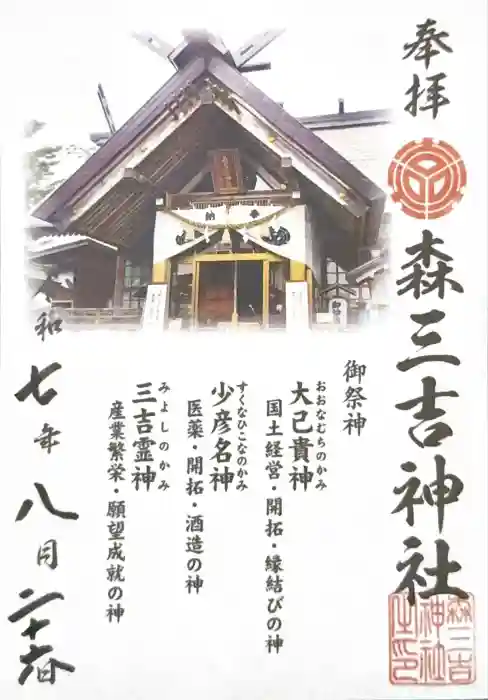 奉拝
森三吉神社
御祭神
おおなむちのかみ
大己貴神
国土経営・開拓・縁結びの神
すくなひこなのかみ
少彦名神
医薬・開拓・酒造の神
みよしのかみ
三吉霊神
産業繁栄・願望成就の神
令和七年八月二十六日
奉納
森三吉
神社
之印